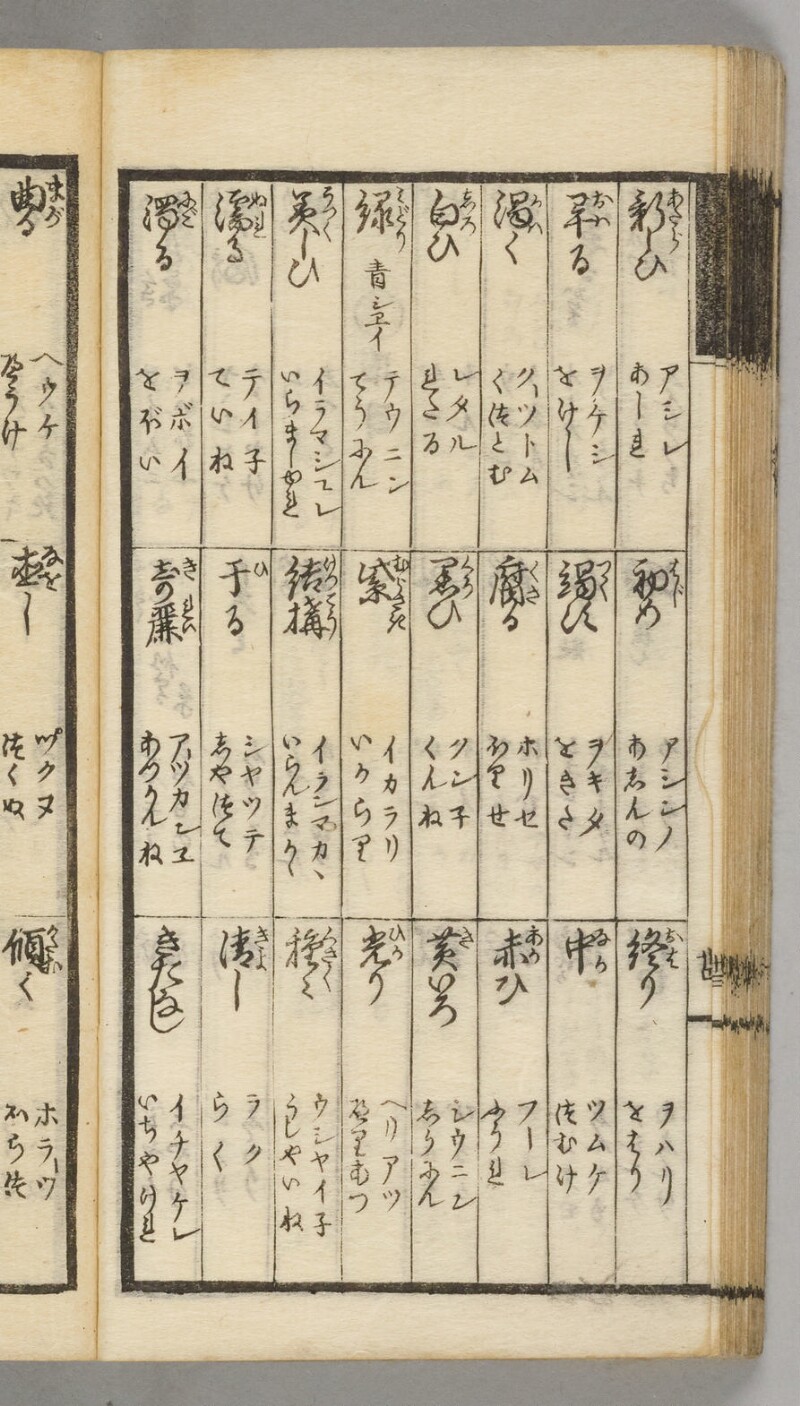 新しひ
あたら
アシレ
あしれ
旱る
ヲケシ
をけし
渇く
かハ
クツトム
くつとむ
白ひ
しろ
レタル
れたる
緑
みどり
青シヱイ
テウニン
てうにん
美しひ
うつく
イラマシユレ
いらましゆれ
濡る
ぬれ
テイ子
ていね
濁る
にご
ヲボイ
をぼい
初め
はじ
アシンノ
あしんの
竭す
つく
ヲキタ
をきた
腐る
くさ
ホリセ
ほりせ
黒ひ
くろ
クンネ
くんね
紫
むらさき
イカラリ
いからり
結構
けつこう
イランマカヽ
いらんまかゝ
干る
ひ
シヤツテ
しやつて
奇麗
きれい
アツカンヱ
終り
おは
ヲハリ
をはり
中
なか
ツムケ
つむけ
赤ひ
あか
フーレ
ふうれ
黄いろ
き
シウニン
しうにん
光り
ひか
ヘリアツ
へりあつ
穢く
ウシヤイ子
うしやいね
清し
きよ
ラク
らく
きたなし
イチヤケレ
いちやけれ
曲る
まが
ヘウケ
へうけ
直し
なを
ツクヌ
つくぬ
傾く
かたふ
ホラーツ
ほらつ